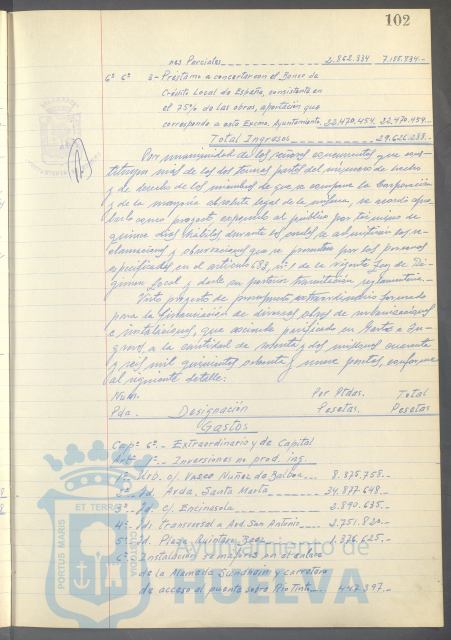 102
nes Parciales 2.862.834 7.155.834.-
6º 6º 3- Préstamo a concertar con el Banco de
Crédito Local de España, consistente en
el 75% de las obras, aportación que
corresponde a este Excmo. Ayuntamiento, 22.470.454 22.470.454.-
Total Ingresos 29.626.288.-
Por unanimidad de los señores concurrentes que cons-
tituyen más de las dos terceras partes del número de hecho
y de derecho de los miembros de que se compone la Corporación
y de la mayoría absoluta legal de la misma, se acordó apro-
bar como proyecto exponerlo al público por término de
quince días hábiles durante los cuales se admitirán las re-
clamaciones y observaciones que se presenten por las personas
especificadas en el artículo 683, nº 1 de la vigente Ley de Ré-
gimen Local y darle su posterior tramitación reglamentaria.-
Visto proyecto de presupuesto extraordinario formado
para la financiación de diversas obras de urbanizaciones
e instalaciones, que asciende nivelado en Gastos e In-
gresos, a la cantidad de y dos millones cuarenta
y seis mil quinientas ochenta y nueve pesetas, conforme
al siguiente detalle:
Núm. Por Ptdas. Total
Pda. Designación Pesetas. Pesetas
Gastos
Capº 6º.- Extraordinario y de Capital
Artº º.- Inversiones no prod. ing.
1º Urb. c/. Vasco Nuñez de Balboa 8.875.758.-
2º Id. Avda. Santa Marta 24.877.648.-
3º Id. c/. Encinasola 2.890.635.-
4º Id. transversal a Avd. San Antonio 2.751.820.-
5º Id. Plaza Quintero Baez 1.376.625.-
6º Instalación semáforos en el enlace
de la Alameda Sundheim y carretera
de acceso al puente sobre Rio Tinto 447.397.-
ET TERRÆ
PORTUS MARIS
CUSTODIA
Ayuntamiento de
HUELVA